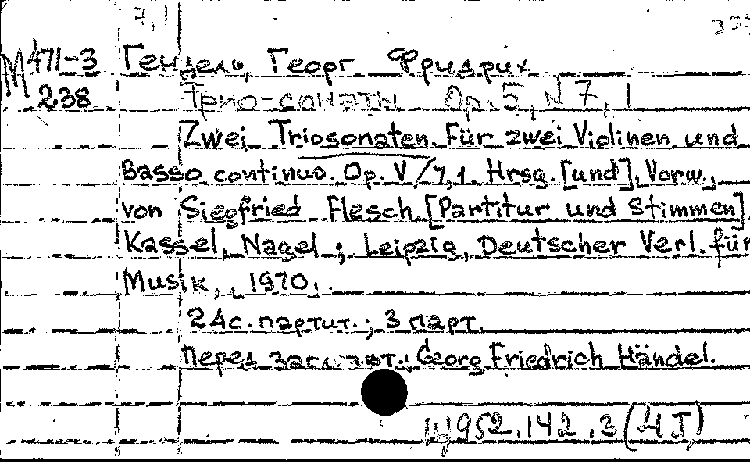 7, 1
M 471-3 Гендель, Георг Фридрих
238 Трио-сонаты Op. 5, N 7, 1
Zwei Triosonaten für zwei Violinen und
Basso continuo. Op. V/7,1. Hrsg. [und] Vorw.
von Siegfried Flesch [Partitur und Stimmen]
Kassel, Nagel; Leipzig, Deutscher Verl. für
Musik, 1970.
24с. партит.; 3 парт.
Перед авт.: Georg Friedrich Händel.
952.142.3